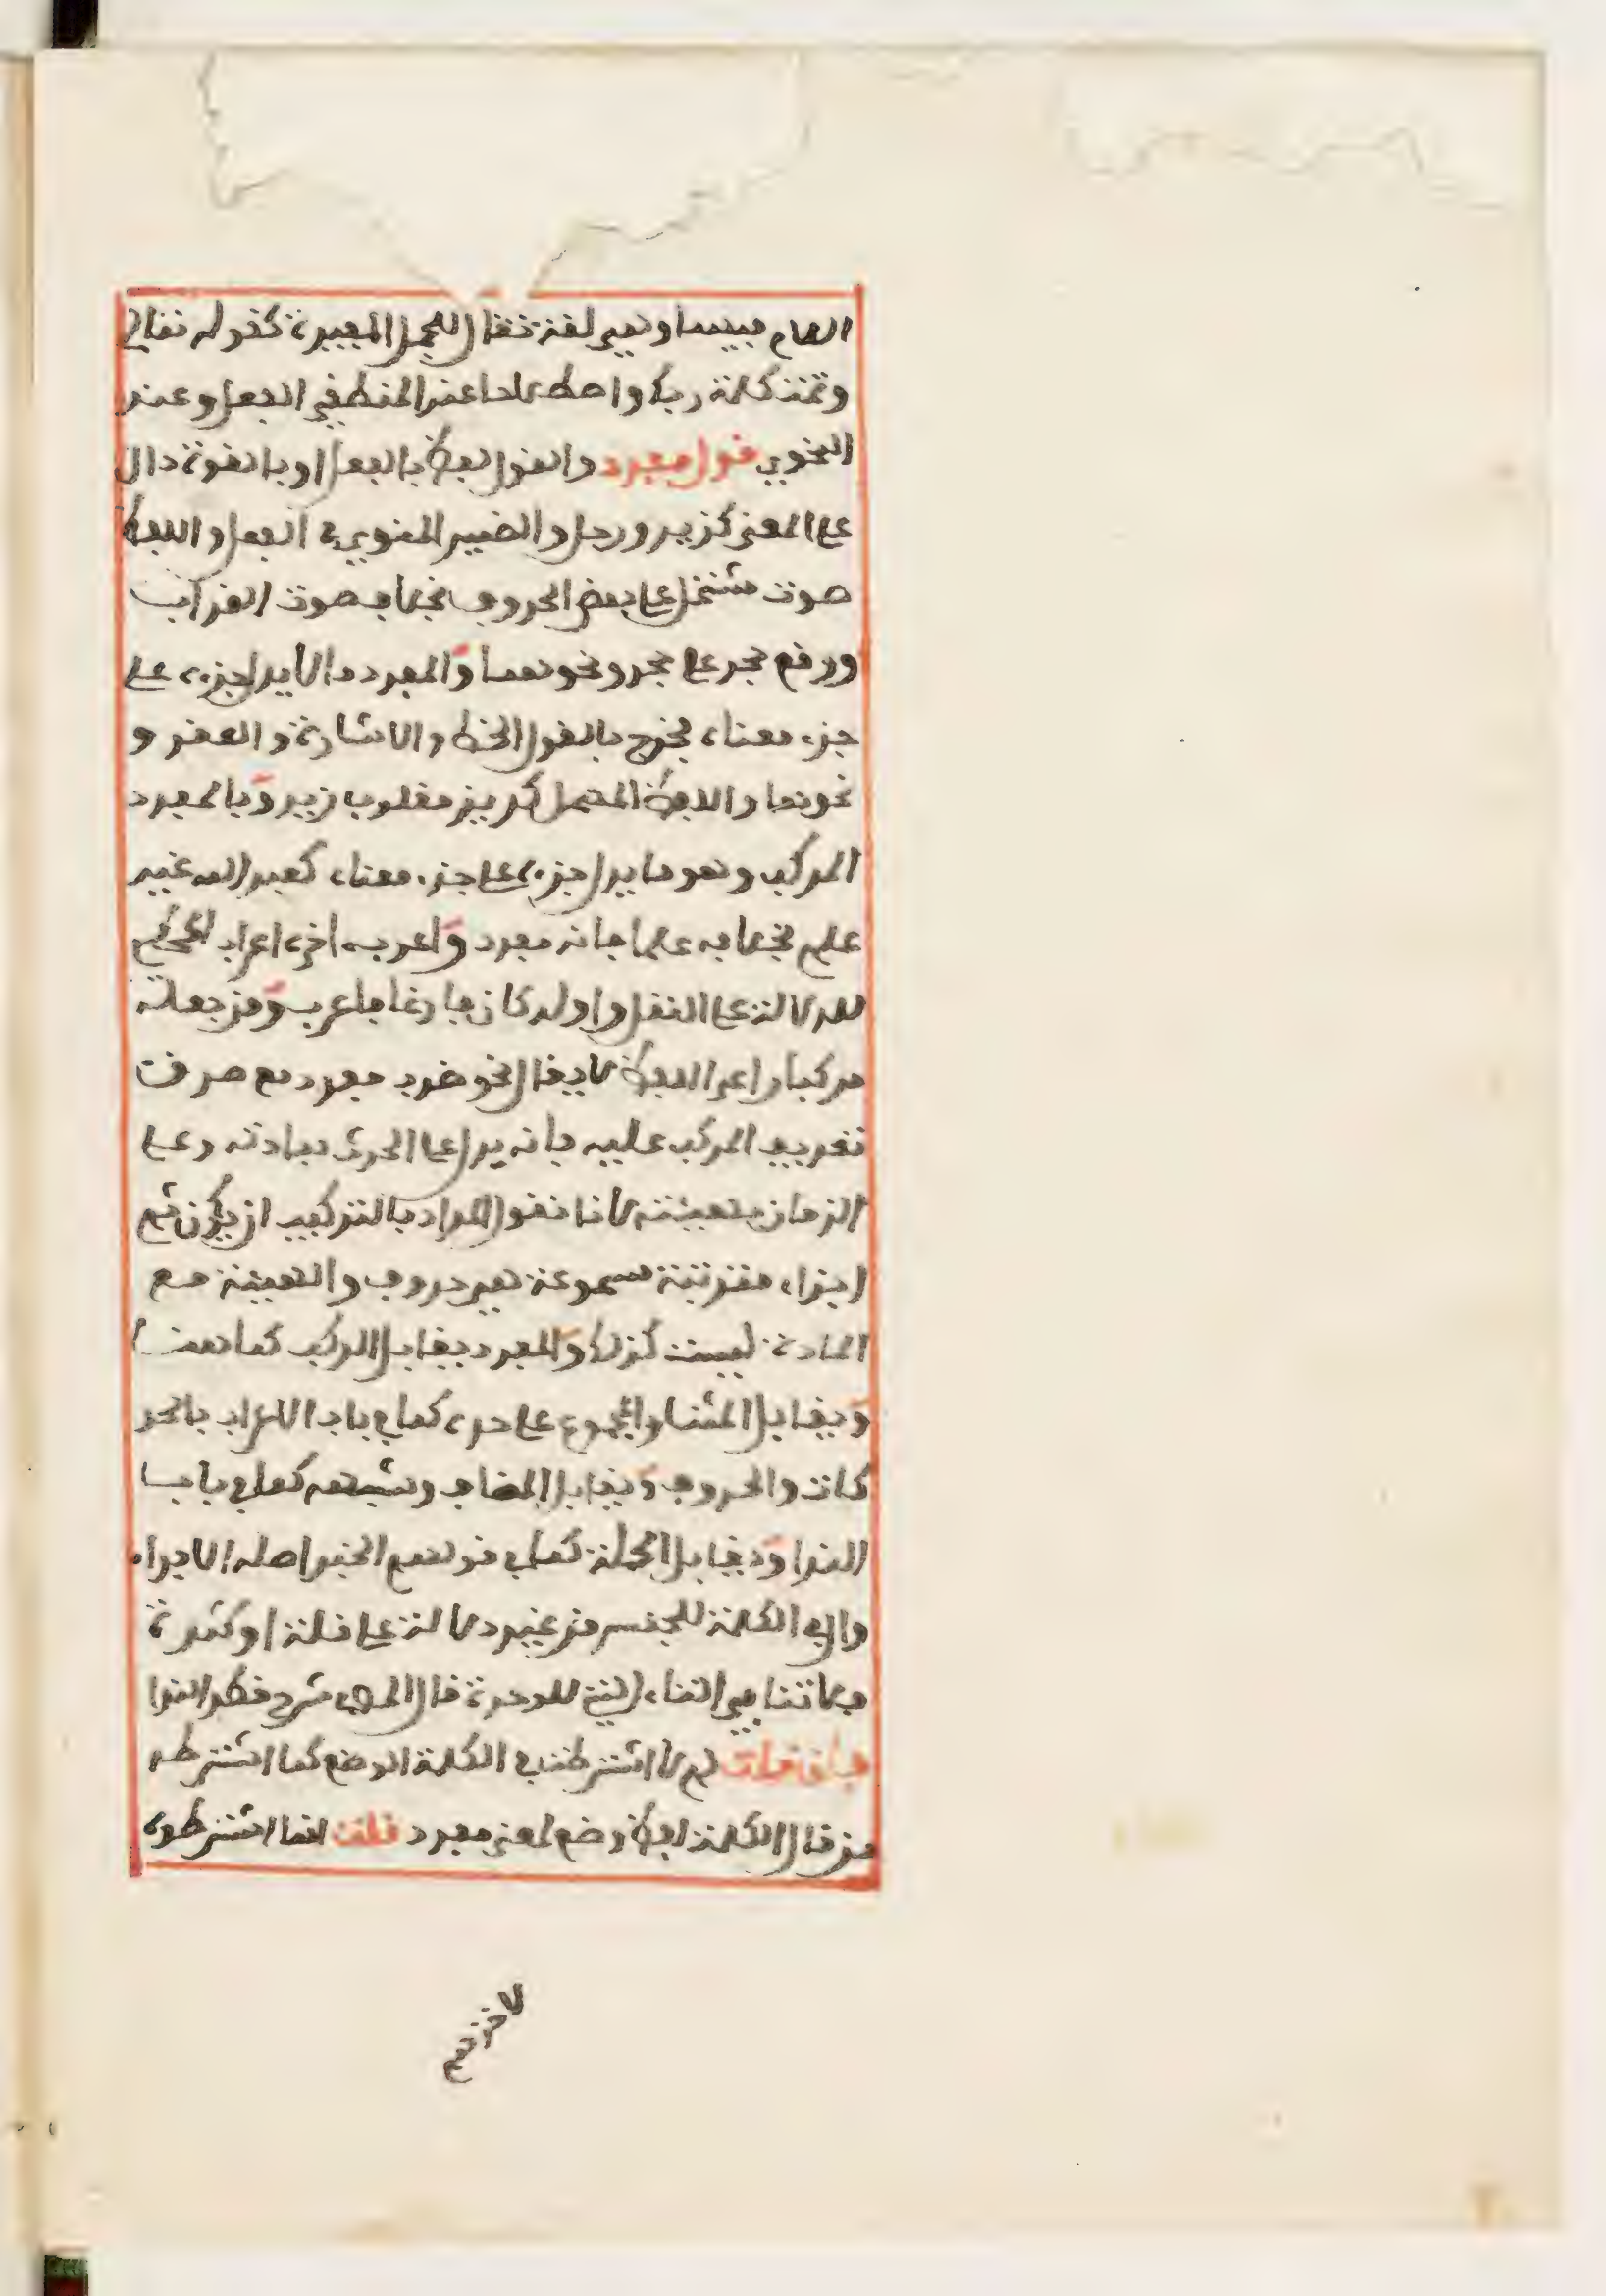 العام فيهما وهي لغة تقال للجمل المفيدة كقوله تعالى
وتمت كلمة ربك واصطلاحا عند المنطقي الفعل وعند
النحوي قول مفرد والقول لفظ بالفعل او بالقوة دال
على المعنى كزيد ورجل والضمير المنوي في الفعل واللفظ
صوت مشتمل على بعض الحروف بخلاف صوت الغراب
ووقع حجر على حجر ونحوهما والمفرد ما لا يدل جزءه على
جزء معناه فخرج بالقول الخط والاشارة والعقد و
نحوها واللفظ المهمل كديز مقلوب زيد وبالمفرد
المركب وهو ما يدل جزءه على جزء معناه كعبد الله غير
علم بخلافه علما فانه مفرد واعرب اخره اعراب المحكم
للدلالة على النقل واوله كان فارغا فاعرب ومن جعله
مركبا راعى اللفظ لا يقال نحو ضرب مفرد مع صدق
تعريف المركب عليه فانه يدل على الحدث بمادته وعلى
الزمان بهيئته لانا نقول المراد بالتركيب ان يكون ثم
اجزاء مترتبة مسموعة هي حروف والهيئة مع
المادة ليست كذلك والمفرد يقابل المركب كما هنا
ويقابل المثنا والمجموع على حده كما في باب الاعراب بالحر
كات والحروف ويقابل المضاف وشبهه كما في باب
الندا ويقابل الجملة كما في قولهم الخبر اصله الافراد
وال في الكلمة للجنس من غير دلالة على قلة او كثرة
فلا تنافي التاء التي للوحدة قال المص في شرح قطر الندا
فان قلت لم لا اشترطت في الكلمة الوضع كما اشترطه
من قال الكلمة لفظ وضع لمعنى مفرد قلت انما اشترطوه